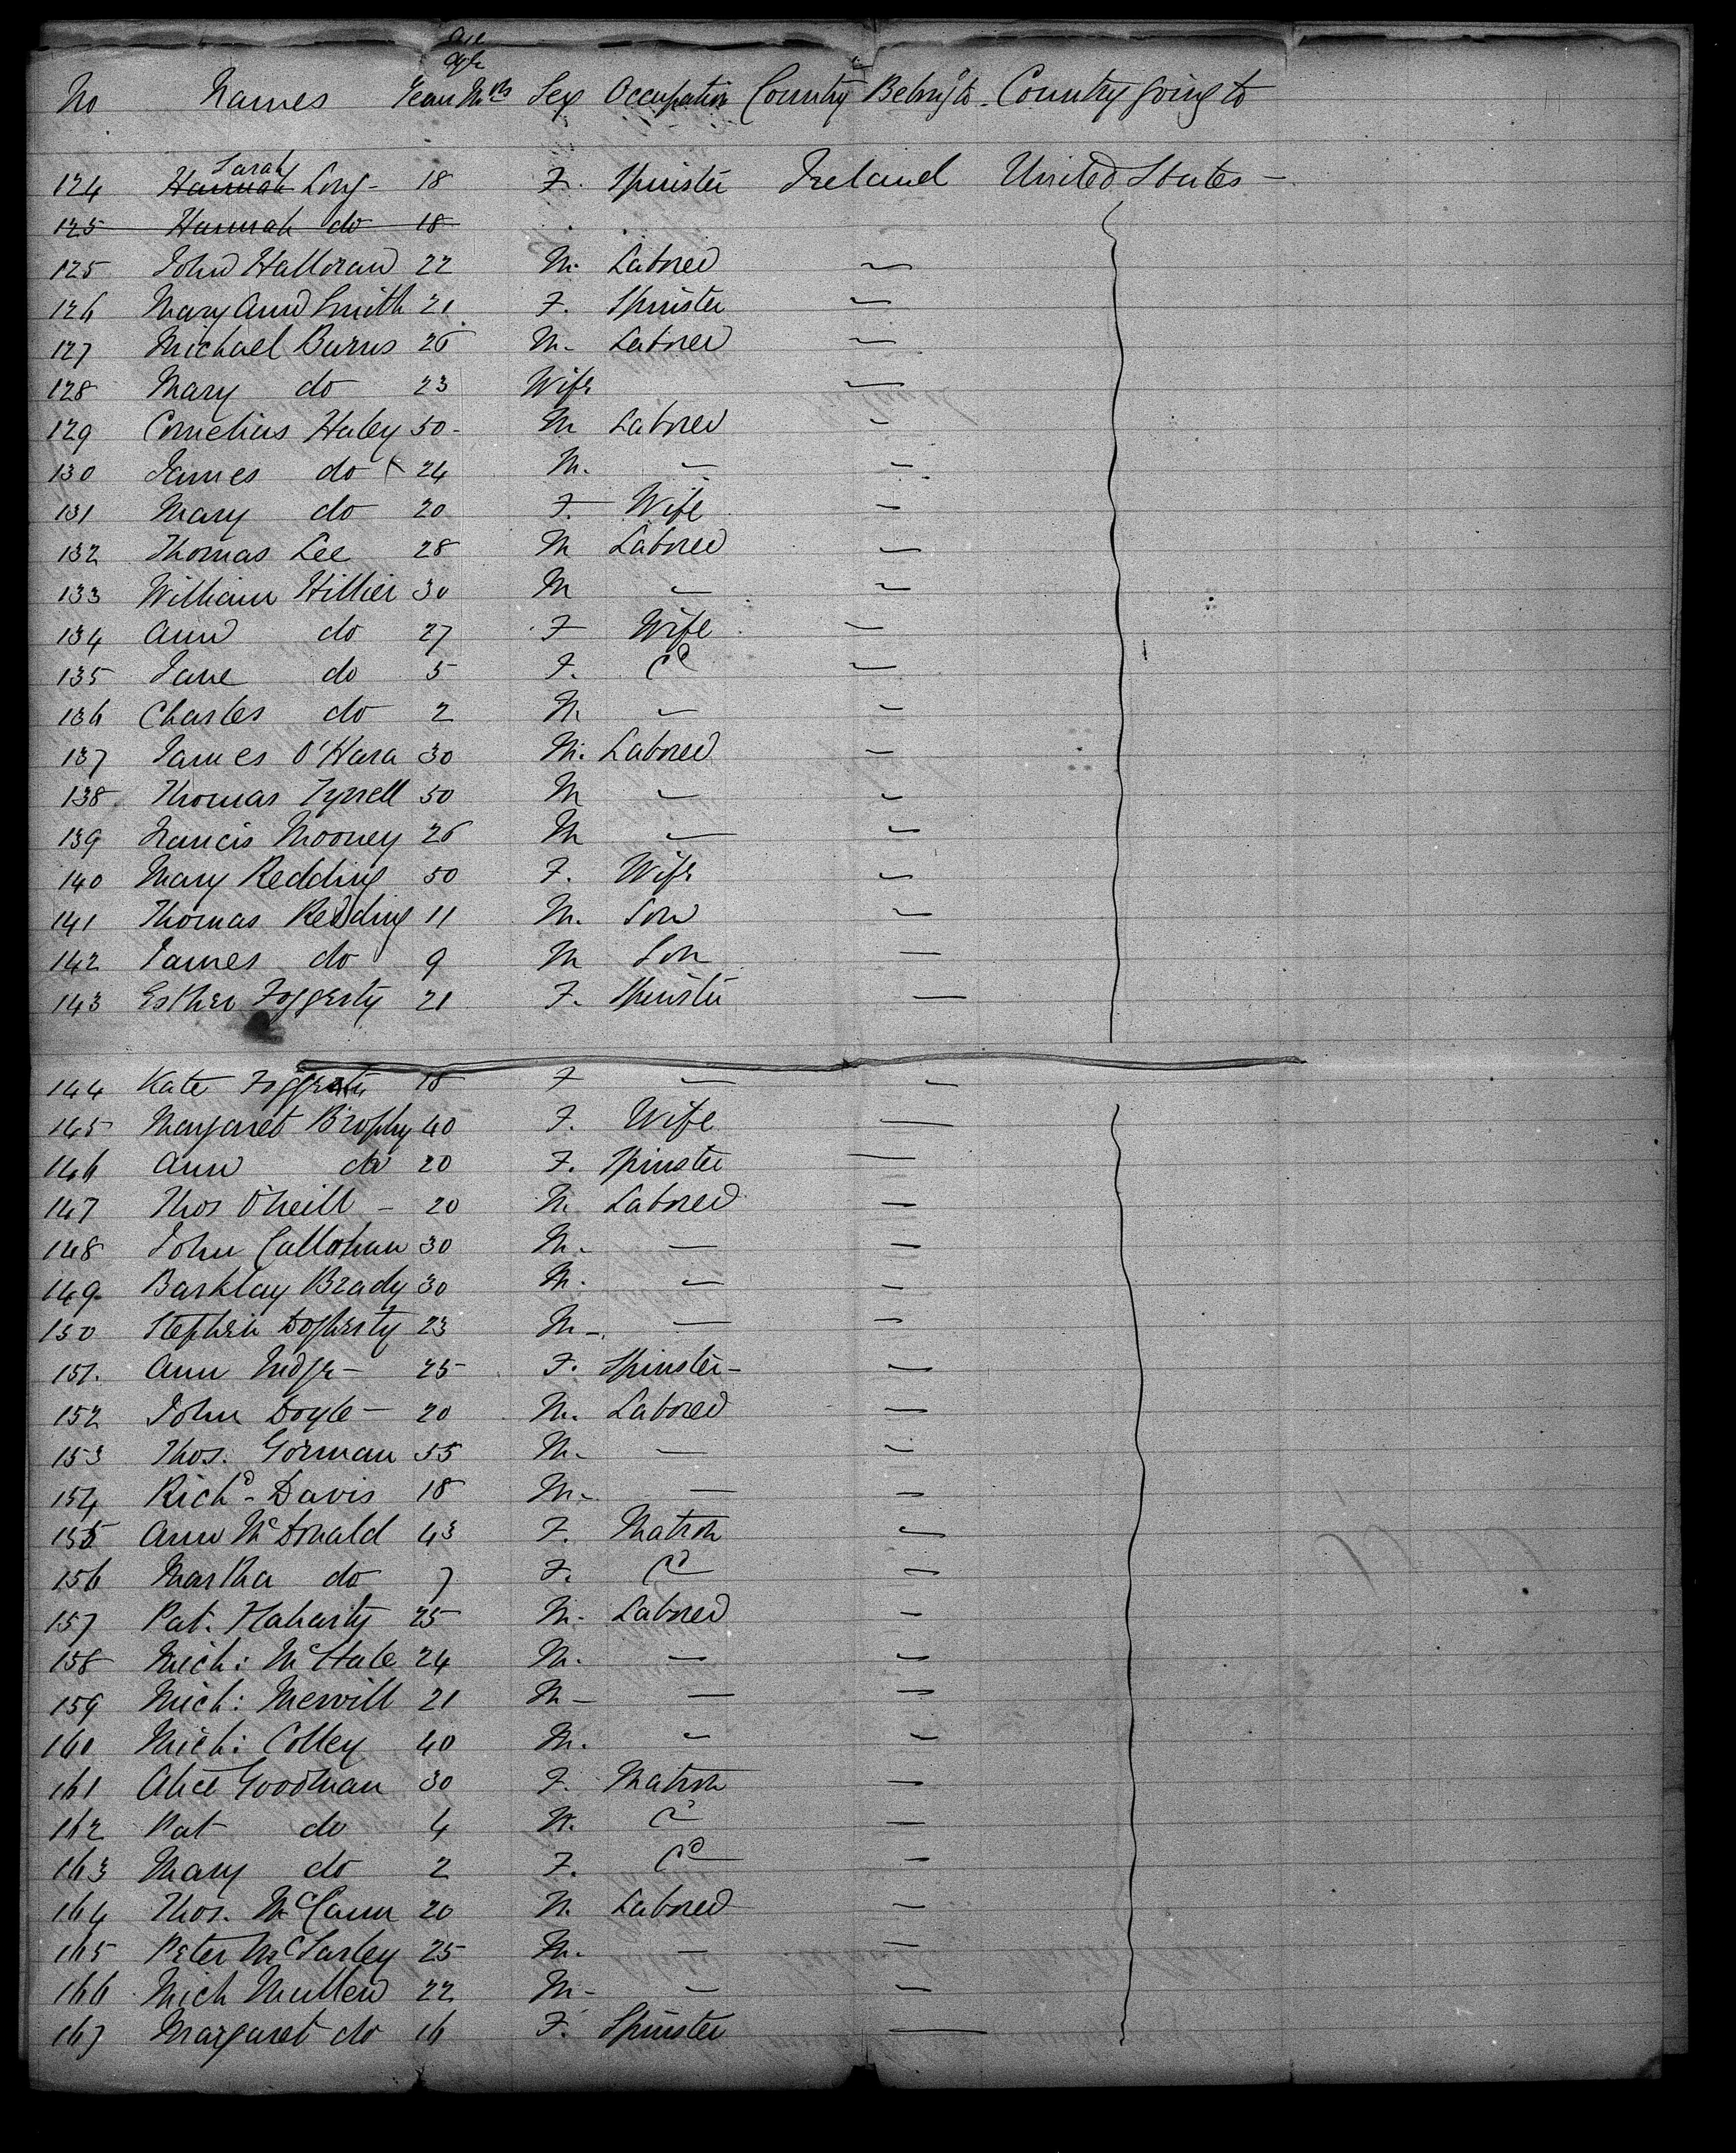 Age
No Names Years Mths Sex Occupation Country Belong to Country going to
124 Hannah Sarah Long - 18 F. Spinster Ireland United States -
125 Hannah do 18
125 John Halloran 22 M. Laborer —
126 Mary Ann Smith 21 F. Spinster —
127 Michael Burns 26 M. Laborer —
128 Mary do 23 Wife —
129 Cornelius Haley 50 - M Laborer -
130 James do 24 M. — -
131 Mary do 20 F. Wife -
132 Thomas Lee 28 M Laborer —
133 William Hillier 30 M — -
134 Ann do 27 F Wife —
135 Jane do 5 F. Cd —
136 Charles do 2 M — -
137 James O'Hara 30 M. Laborer —
138 Thomas Tyrrell 50 M — -
139 Francis Mooney 26 M — -
140 Mary Redding 50 F. Wife -
141 Thomas Redding 11 M. Son —
142 James do 9 M Son —
143 Esther Foggerty 21 F. Spinster —
144 Kate Foggerty 18 F — -
145 Margaret Brophy 40 F. Wife —
146 Ann do 20 F. Spinster —
147 Thos O'Neill - 20 M Laborer —
148 John Callohan 30 M. — —
149 Barklay Brady 30 M. — -
150 Stephen Dogherty 23 M - — -
151. Ann - 25 F. Spinster - —
152 John Doyle - 20 M. Laborer —
153 Thos. Gorman 55 M. — -
154 Richd - Davis 18 M. — -
155 Ann McDonald 43 F. Matron —
156 Martha do 7 F. Cd —
157 Pat. Flaharty 25 M. Laborer -
158 Mich: McHale 24 M. — -
159 Mich: Merrill 21 M - — —
160 Mich: Colley 40 M. — -
161 Alice Goodman 30 F. Matron —
162 Pat do 4 M. Cd —
163 Mary do 2 F. Cd -
164 Thos. McCann 20 M. Laborer —
165 Peter 25 M. — —
166 Mich Mullen 22 M - — —
167 Margaret do 16 F. Spinster —